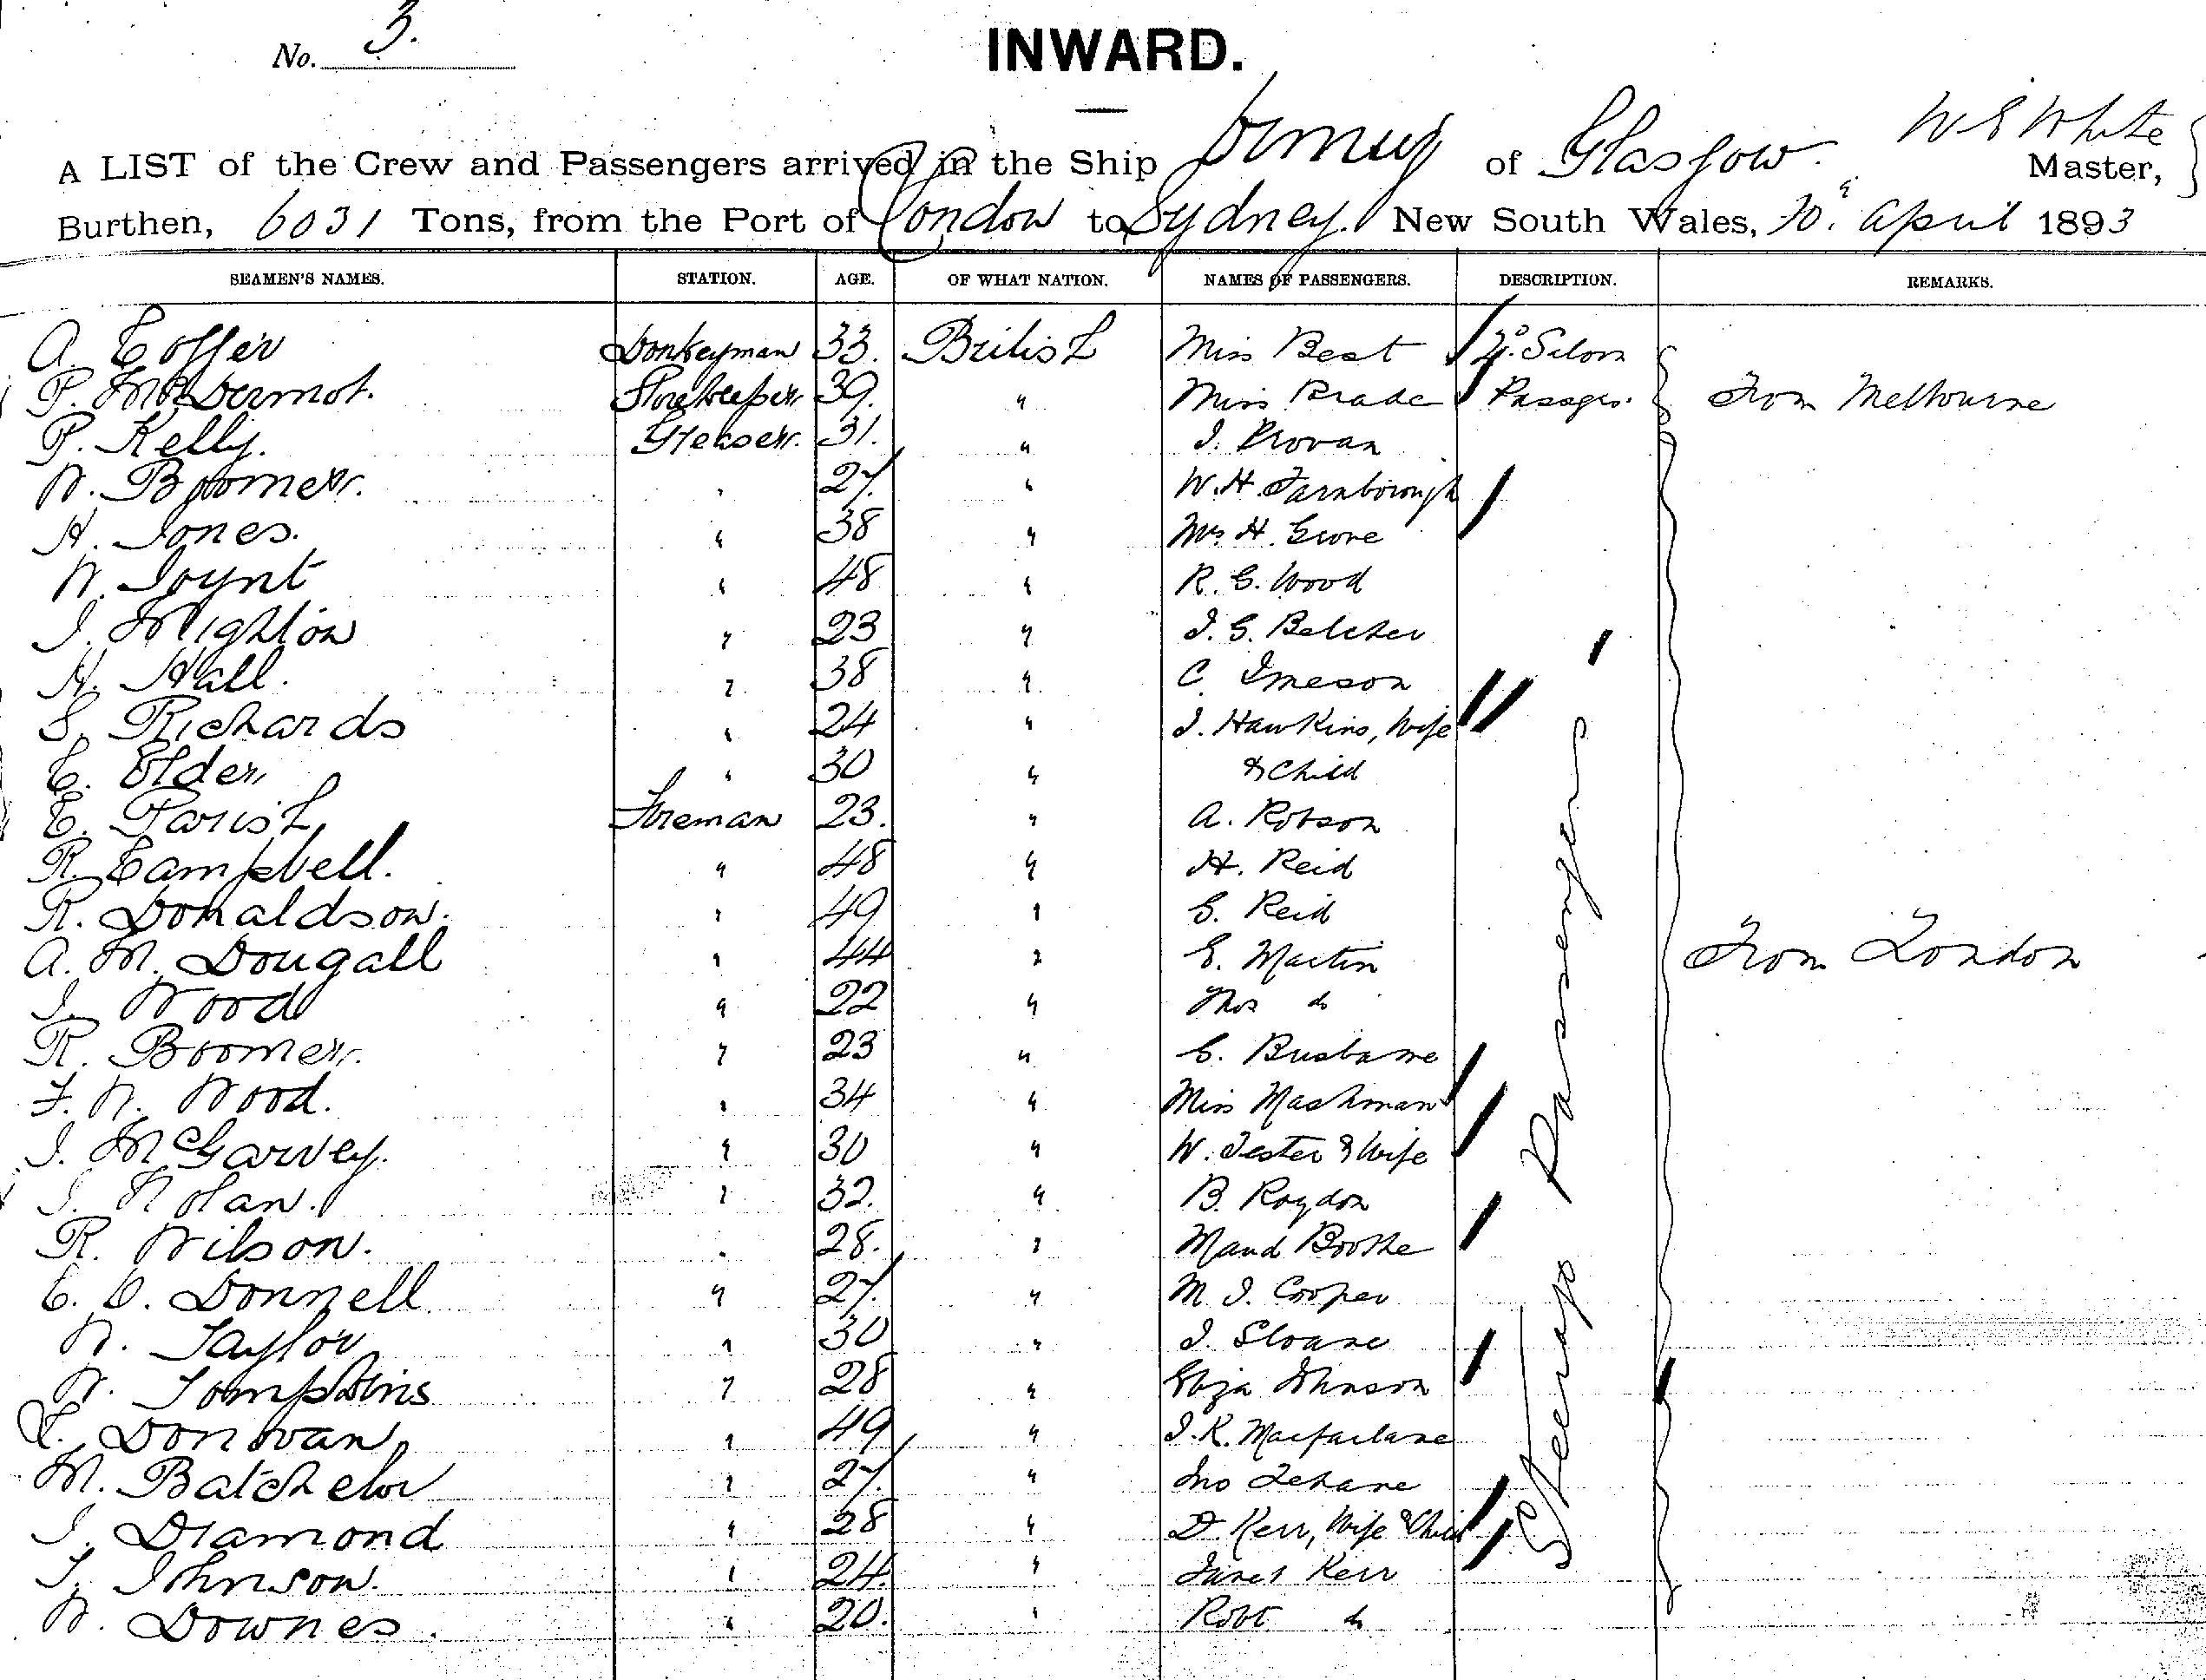 No. 3.
INWARD.
A LIST of the Crew and Passengers arrived in the Ship Ormuz of Glasgow. W E White Master,
Burthen, 6031 Tons, from the Port of London to Sydney. New South Wales, April 1893
SEAMEN'S NAMES. STATION. AGE. OF WHAT NATION. NAMES OF PASSENGERS. DESCRIPTION. REMARKS.
A. Donkeyman 33. British Miss Best 2d. Saloon
P. McDermot. Storekeeper 39. " Miss Brade Passgrs. From Melbourne
P. Kelly. Greaser. 31. " J. Provan
W. Boomer. " 27. " W. H. Farnborough
H. Jones. " 38 " Mrs H. Grove
W. Joynt " 48 " R. G. Wood
J. Mighton " 23 " J. G. Belcher
H. Hall. " 38 " C. Imeson
S. Richards " 24 " J. Hawkins, Wife
C. Older " 30 " & Child
C. Parish Fireman 23. " A. Robson
R. Campbell. " 48 " H. Reid
R. Donaldson. " 49 " G. Reid
A. M. Dougall " 44 " E. Martin From London
J. Wood " 22 " Thos do
R. Boomer. " 23 " Brisbane
F. W. Wood. " 34 " Miss Mashman
J. McGarvey. " 30 " W. Tester & Wife
J. Nolan. " 32. " B. Roydon
R. Wilson. " 28. " Maud Boothe
C. O. Donnell " 27. " M. J. Cooper
W. Taylor " 30 " J. Sloane
W. Tompkins " 28 " Eliza Johnson
Donovan " 49 " J. R. Macfarlane
M. Batchelor " 27. " Jno Tehane
J. Diamond " 28 " D. Kerr, Wife & Child
T. Johnson. " 24. " Janet Kerr
W. Downes. " 20. " Robt do
Steerage Passengers